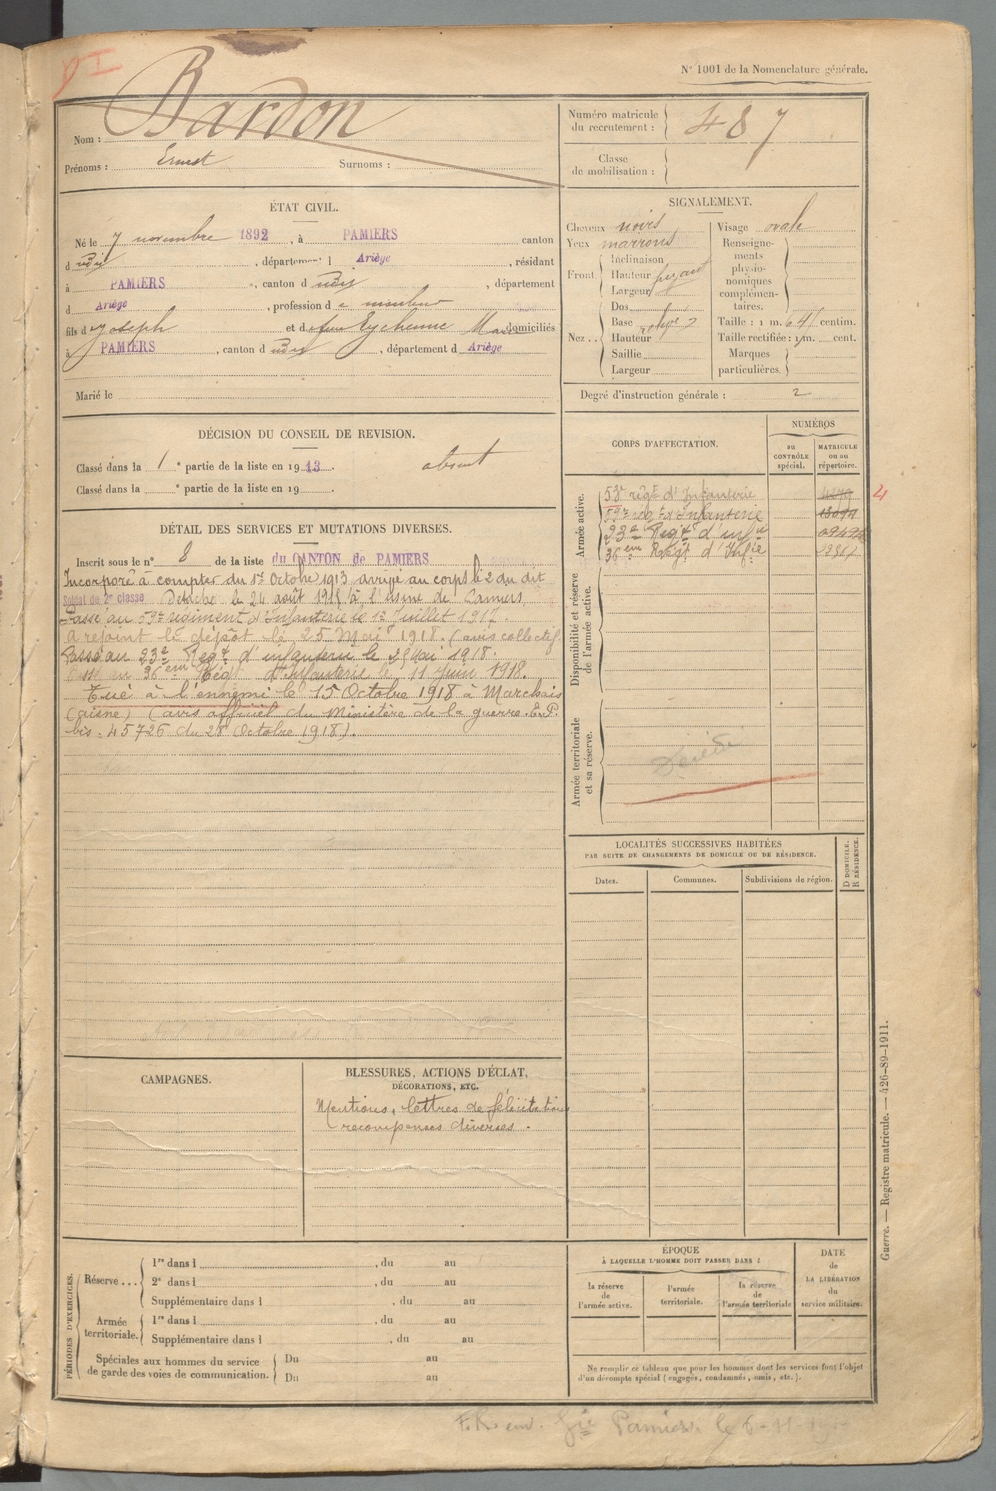 N° 1001 de la Nomenclature générale.
Nom : Bardon
Prénoms : Ernest Surnoms :
Numéro matricule du recrutement : 487
Classe de mobilisation :
ÉTAT CIVIL.
Né le 7 novembre 1892, à PAMIERS canton
d udit, département d Ariège, résidant
à PAMIERS, canton d udit, département
d Ariège, profession d e mineur
fils d e Joseph et d e feue Eychenne Marie domiciliés
à PAMIERS, canton d udit, département d Ariège
Marié le
SIGNALEMENT.
Cheveux noirs
Yeux marrons
Front Inclinaison
Hauteur
Largeur
Nez Dos
Base
Hauteur
Saillie
Largeur
Visage ovale
Renseignements physionomiques complémentaires.
Taille : 1 m. 64 centim.
Taille rectifiée : 1 m. cent.
Marques particulières.
Degré d'instruction générale : 2
DÉCISION DU CONSEIL DE REVISION.
Classé dans la 1e partie de la liste en 1913. absent
Classé dans la e partie de la liste en 19 .
CORPS D'AFFECTATION.
NUMÉROS
au CONTRÔLE spécial.
MATRICULE ou au répertoire.
Armée active.
59e régt d'Infanterie
59e regt d'Infanterie
23e Régt d'infie
36eme Régt d'Infie
4
Disponibilité et réserve de l'armée active.
Armée territoriale et sa réserve.
Décédé
DÉTAIL DES SERVICES ET MUTATIONS DIVERSES.
Inscrit sous le n° 8 de la liste du CANTON de PAMIERS
Incorporé à compter du 1er Octobre 1913 arrivé au corps le 2 du dit
Soldat de 2e classe Détaché le 24 août 1915 à l'usine de Pamiers.
Passé au 59e régiment d'Infanterie le 1er Juillet 1917.
A rejoint le dépôt le 25 Mai 1918. (avis collectif
Passé au 23e Régt d'infanterie le 29 Mai 1918.
Passé au 36eme Régt d'Infanterie le 11 Juin 1918.
Tué à l'ennemi le 15 Octobre 1918 à Marchais
(aisne) (avis officiel du Ministère de la guerre. E.P.
bis. 45726 du 28 Octobre 1918).
LOCALITÉS SUCCESSIVES HABITÉES
PAR SUITE DE CHANGEMENTS DE DOMICILE OU DE RÉSIDENCE.
Dates. Communes. Subdivisions de région.
D DOMICILE.
R RÉSIDENCE.
CAMPAGNES.
BLESSURES, ACTIONS D'ÉCLAT,
DÉCORATIONS, ETC.
Mentions, lettres de félicitations
recompenses diverses.
PÉRIODES D'EXERCICES.
Réserve...
1re dans l , du au
2e dans l , du au
Supplémentaire dans l , du au
Armée territoriale.
1re dans l , du au
Supplémentaire dans l , du au
Spéciales aux hommes du service de garde des voies de communication.
Du au
Du au
ÉPOQUE
À LAQUELLE L'HOMME DOIT PASSER DANS :
la réserve de l'armée active.
l'armée territoriale.
la réserve de l'armée territoriale
DATE de LA LIBÉRATION du service militaire.
Ne remplir ce tableau que pour les hommes dont les services font l'objet
d'un décompte spécial (engagés, condamnés, omis, etc.).
Guerre. — Registre matricule. — 426-89-1911.
Gie Pamiers. le 6-11-